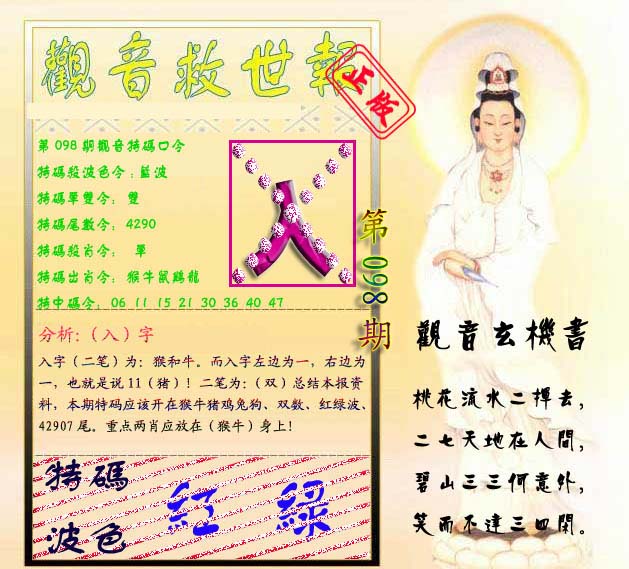 觀音救世報
正版
第 098 期觀音特碼口令
特碼殺波色令：藍波
特碼單雙令： 雙
特碼尾數令： 4290
特碼殺肖令： 單
特碼出肖令： 猴牛鼠鷄龍
特中碼令： 06 11 15 21 30 36 40 47
入
第 098 期
分析:（入）字
入字（二笔）为：猴和牛。而入字左边为一，右边为
一，也就是说 11（猪）！二笔为：（双）总结本报资
料，本期特码应该开在猴牛猪鸡兔狗、双数、红绿波、
42907 尾。重点两肖应放在（猴牛）身上！
特碼
波色
紅 綠
觀音玄機書
桃花流水二揮去，
二七天地在人間，
碧山三三何意外，
笑而不達三四閑。